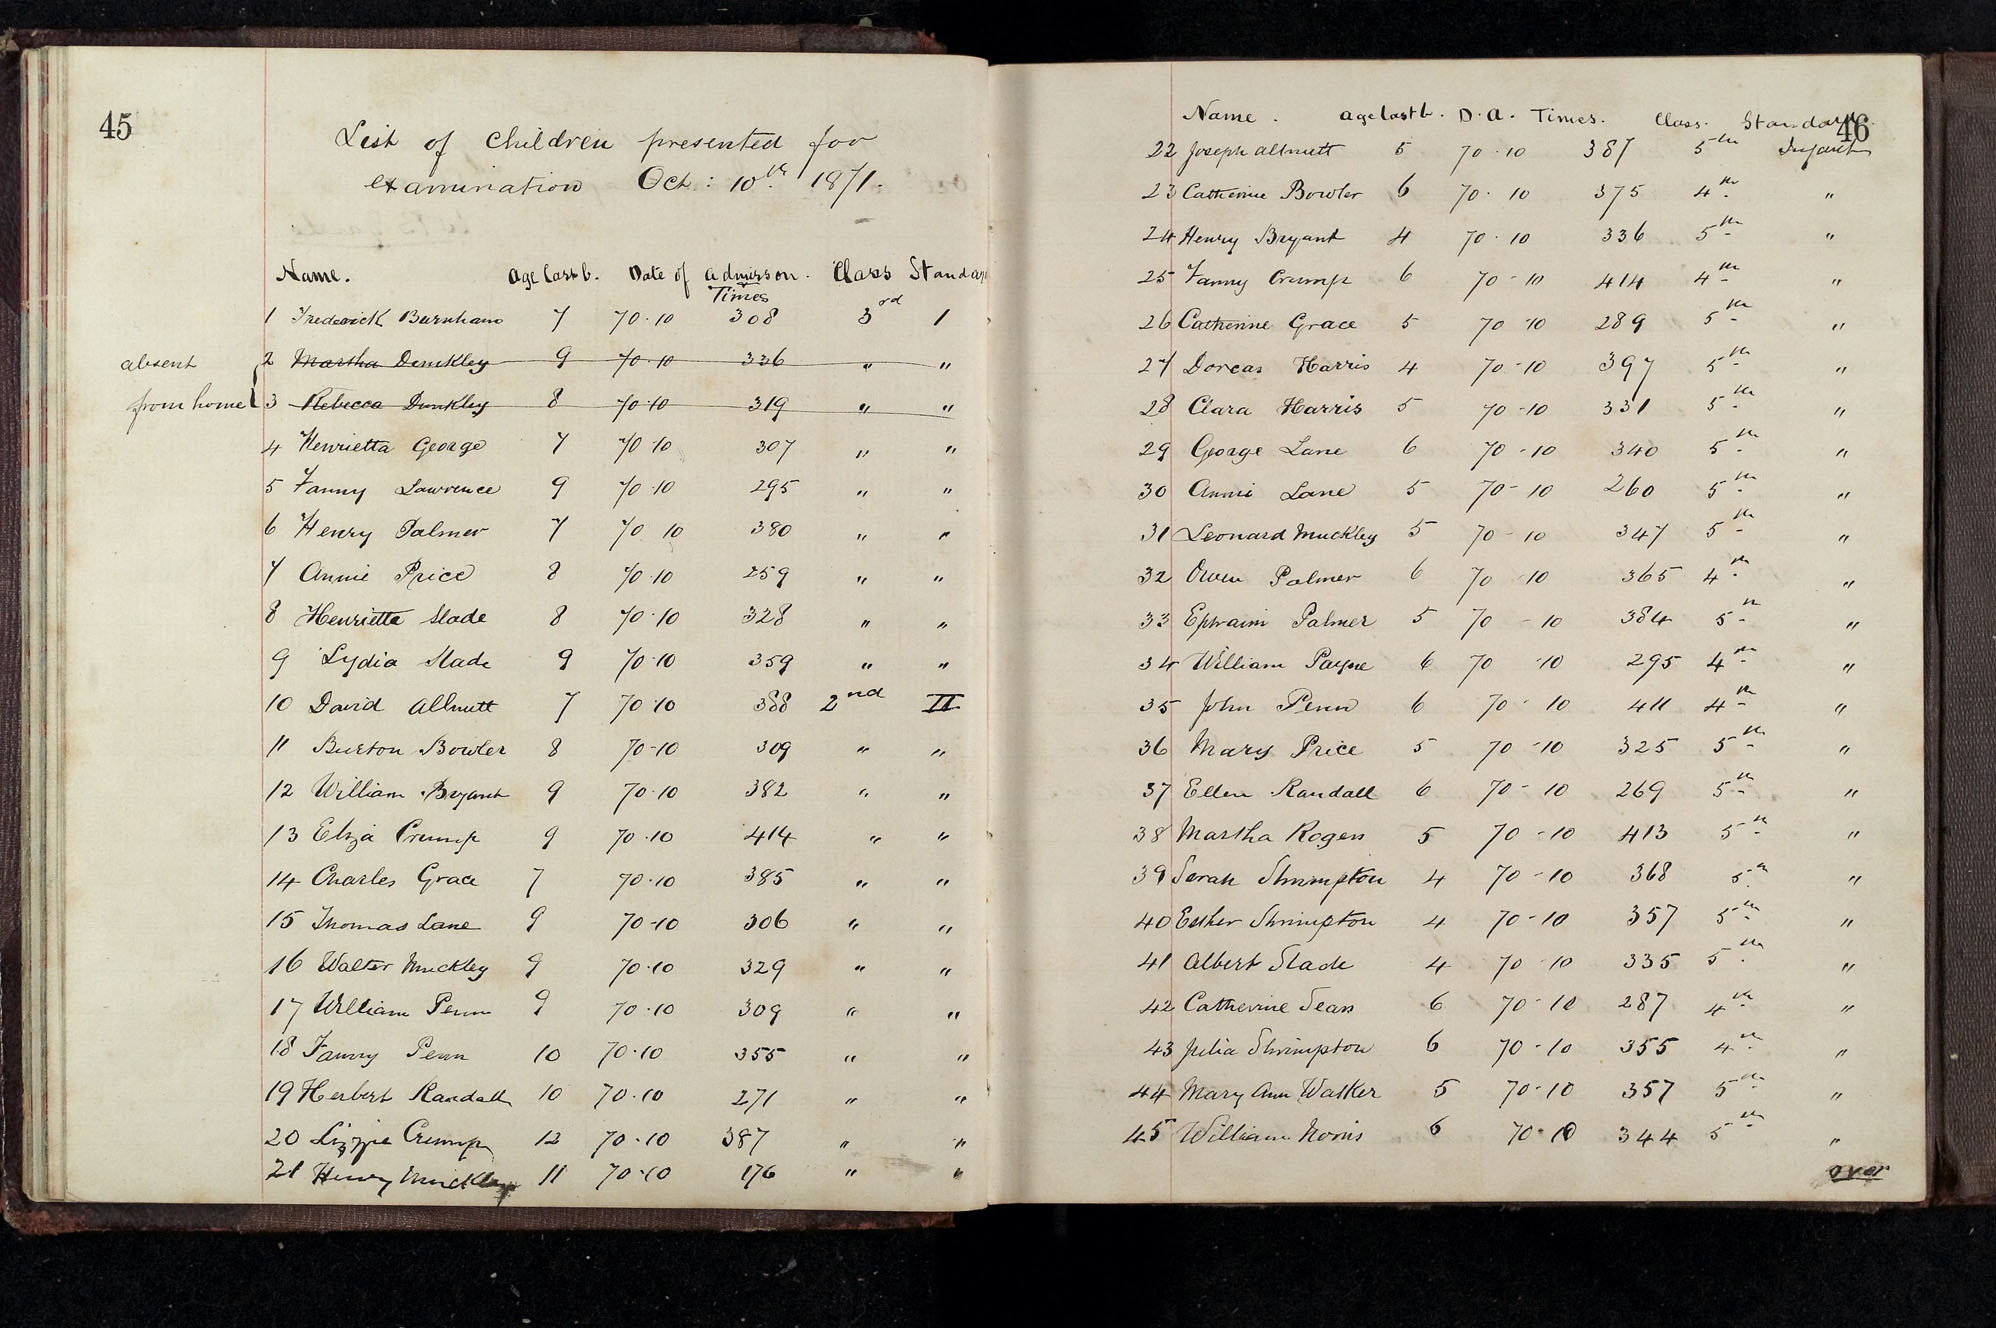 45
List of children presented for
examination Oct: 10th 1871.
Name. age last b. Date of admisson. Class Standard
Times
1 Frederick Burnham 7 70.10 308 3rd 1
absent 2 Martha Dunkley 9 70.10 336 " "
from home 3 Rebecca Dunkley 8 70.10 319 " "
4 Henrietta George 7 70.10 307 " "
5 Fanny Lawrence 9 70.10 295 " "
6 Henry Palmer 7 70 10 380 " "
7 Annie Price 8 70.10 259 " "
8 Henrietta Slade 8 70.10 328 " "
9 Lydia Slade 9 70.10 359 " "
10 David Allnutt 7 70.10 388 2nd II
11 Burton Bowler 8 70-10 309 " "
12 William Bryant 9 70.10 382 " "
13 Eliza Crump 9 70.10 414 " "
14 Charles Grace 7 70.10 385 " "
15 Thomas Lane 9 70-10 306 " "
16 Walter Muckley 9 70.10 329 " "
17 William Penn 9 70.10 309 " "
18 Fanny Penn 10 70.10 355 " "
19 Herbert Randall 10 70.10 271 " "
20 Lizzie Crump 12 70.10 387 " "
21 Henry Muckley 11 70-10 176 " "
46
Name. age last b. D.A. Times. Class. Standard
22 Joseph Allnutt 5 70.10 387 5th Infant
23 Catherine Bowler 6 70.10 375 4th "
24 Henry Bryant 4 70.10 336 5th "
25 Fanny Crump 6 70-10 414 4th "
26 Catherine Grace 5 70-10 289 5th "
27 Dorcas Harris 4 70-10 397 5th "
28 Clara Harris 5 70-10 331 5th "
29 George Lane 6 70-10 340 5th "
30 Annie Lane 5 70-10 260 5th "
31 Leonard Muckley 5 70-10 347 5th "
32 Owen Palmer 6 70 10 365 4th "
33 Ephraim Palmer 5 70-10 384 5th "
34 William Payne 6 70-10 295 4th "
35 John Penn 6 70-10 411 4th "
36 Mary Price 5 70-10 325 5th "
37 Ellen Randall 6 70-10 269 5th "
38 Martha Rogers 5 70-10 413 5th "
39 Sarah Shrimpton 4 70-10 368 5th "
40 Esther Shrimpton 4 70-10 357 5th "
41 Albert Slade 4 70 10 335 5th "
42 Catherine Sears 6 70-10 287 4th "
43 Julia Shrimpton 6 70-10 355 4th "
44 Mary Ann Walker 5 70-10 357 5th "
45 William Norris 6 70-10 344 5th "
over